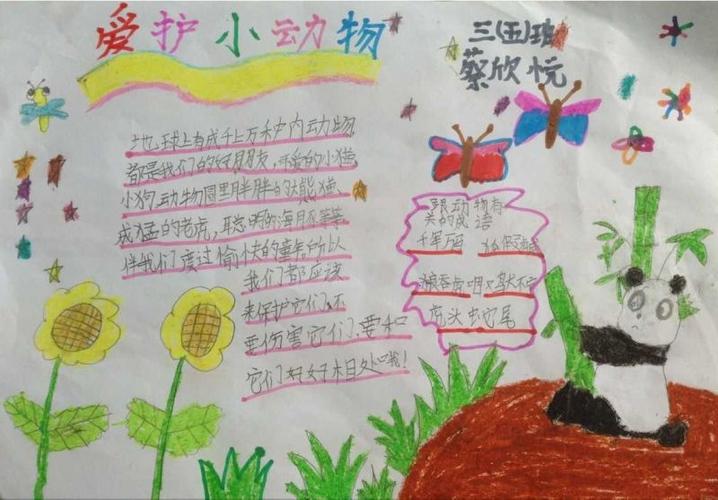 爱护小动物
三(五)班
蔡欣悦
地球上有成千上万种内动物
都是我们的好朋友,可爱的小猫
小狗动物园里胖胖的大熊猫、
威猛的老虎,聪明的海豚等等
伴我们度过愉快的童年所以
我们都应该
来保护它们,不
要伤害它们,要和
它们好好相处哦!
跟动物有
关的成语
千军万马
狼吞虎咽
虎头蛇尾